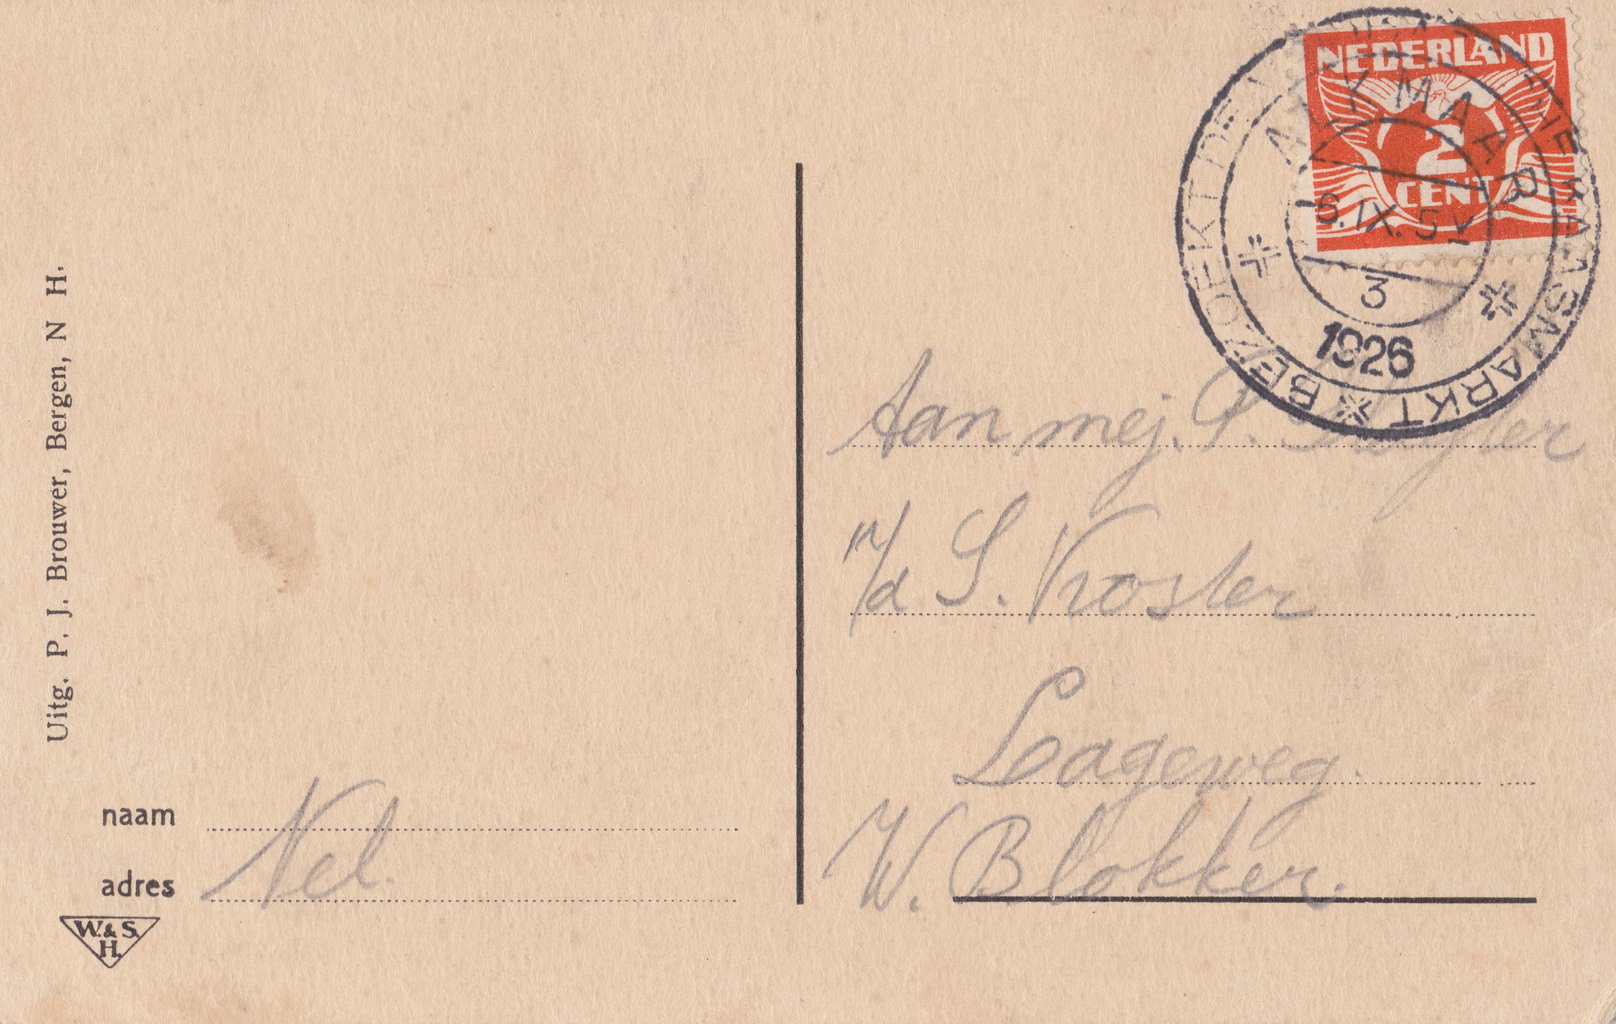 NEDERLAND
2
CENT
ALKMAAR
6.IX.5
3
1926
BEZOEKT DE KAASMARKT
Aan mej.
n/d S. Koster
Lageweg.
W. Blokker.
Uitg. P. J. Brouwer, Bergen, N H.
naam
Nel.
adres
W. & S.
H.